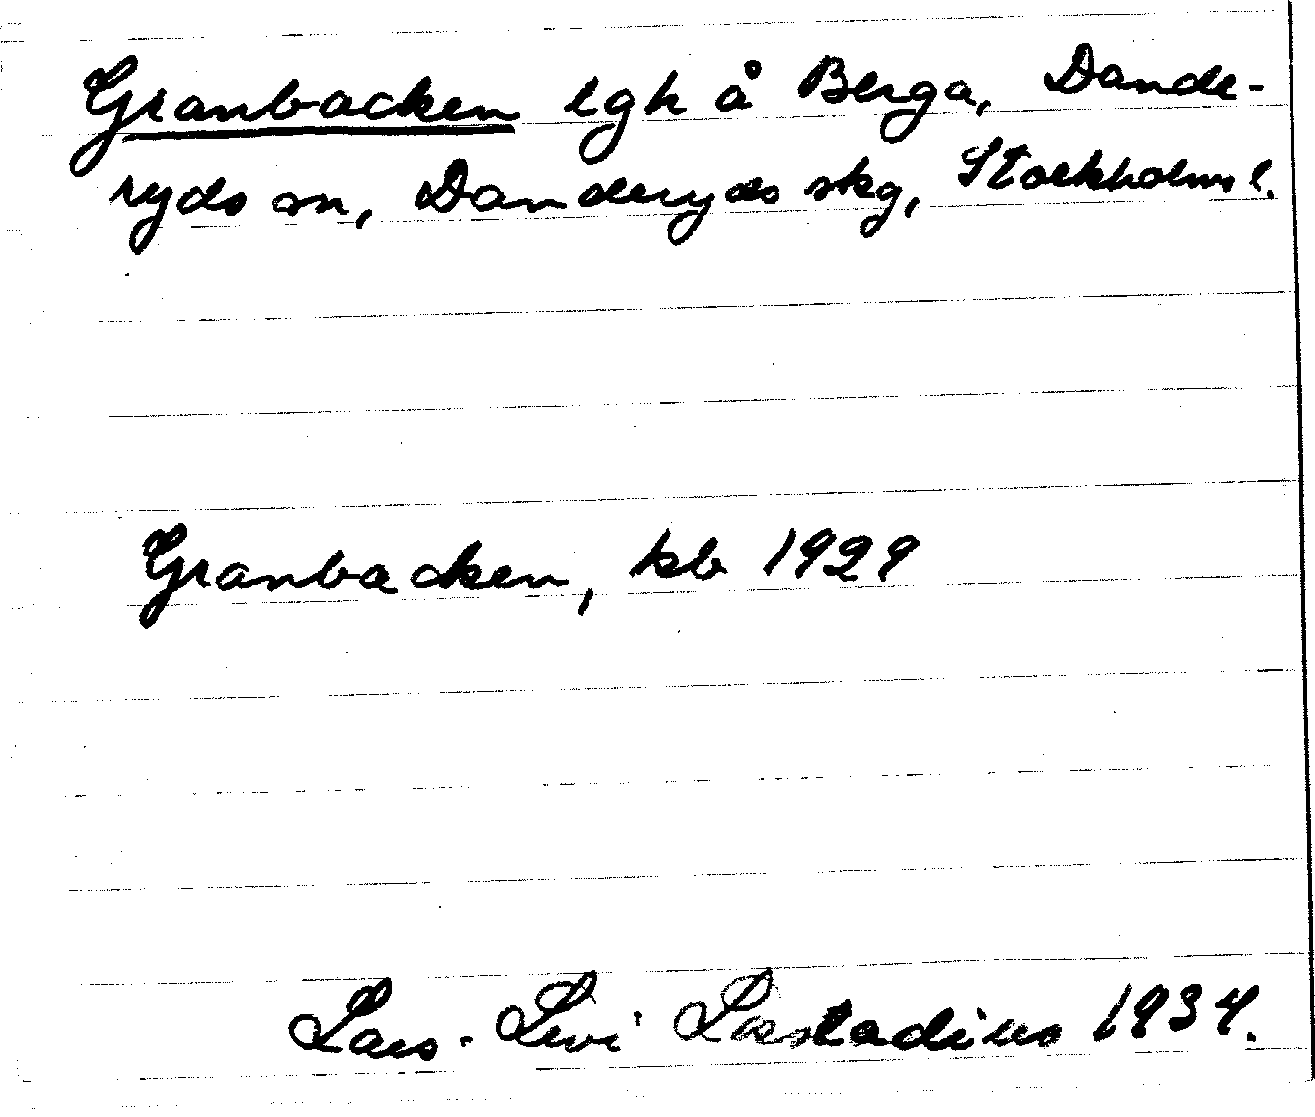 Granbacken lgh å Berga, Dande-
ryds sn, Danderyds skg, Stockholms l.
Granbacken, kb 1929
Lars-Levi Læstadius 1934.